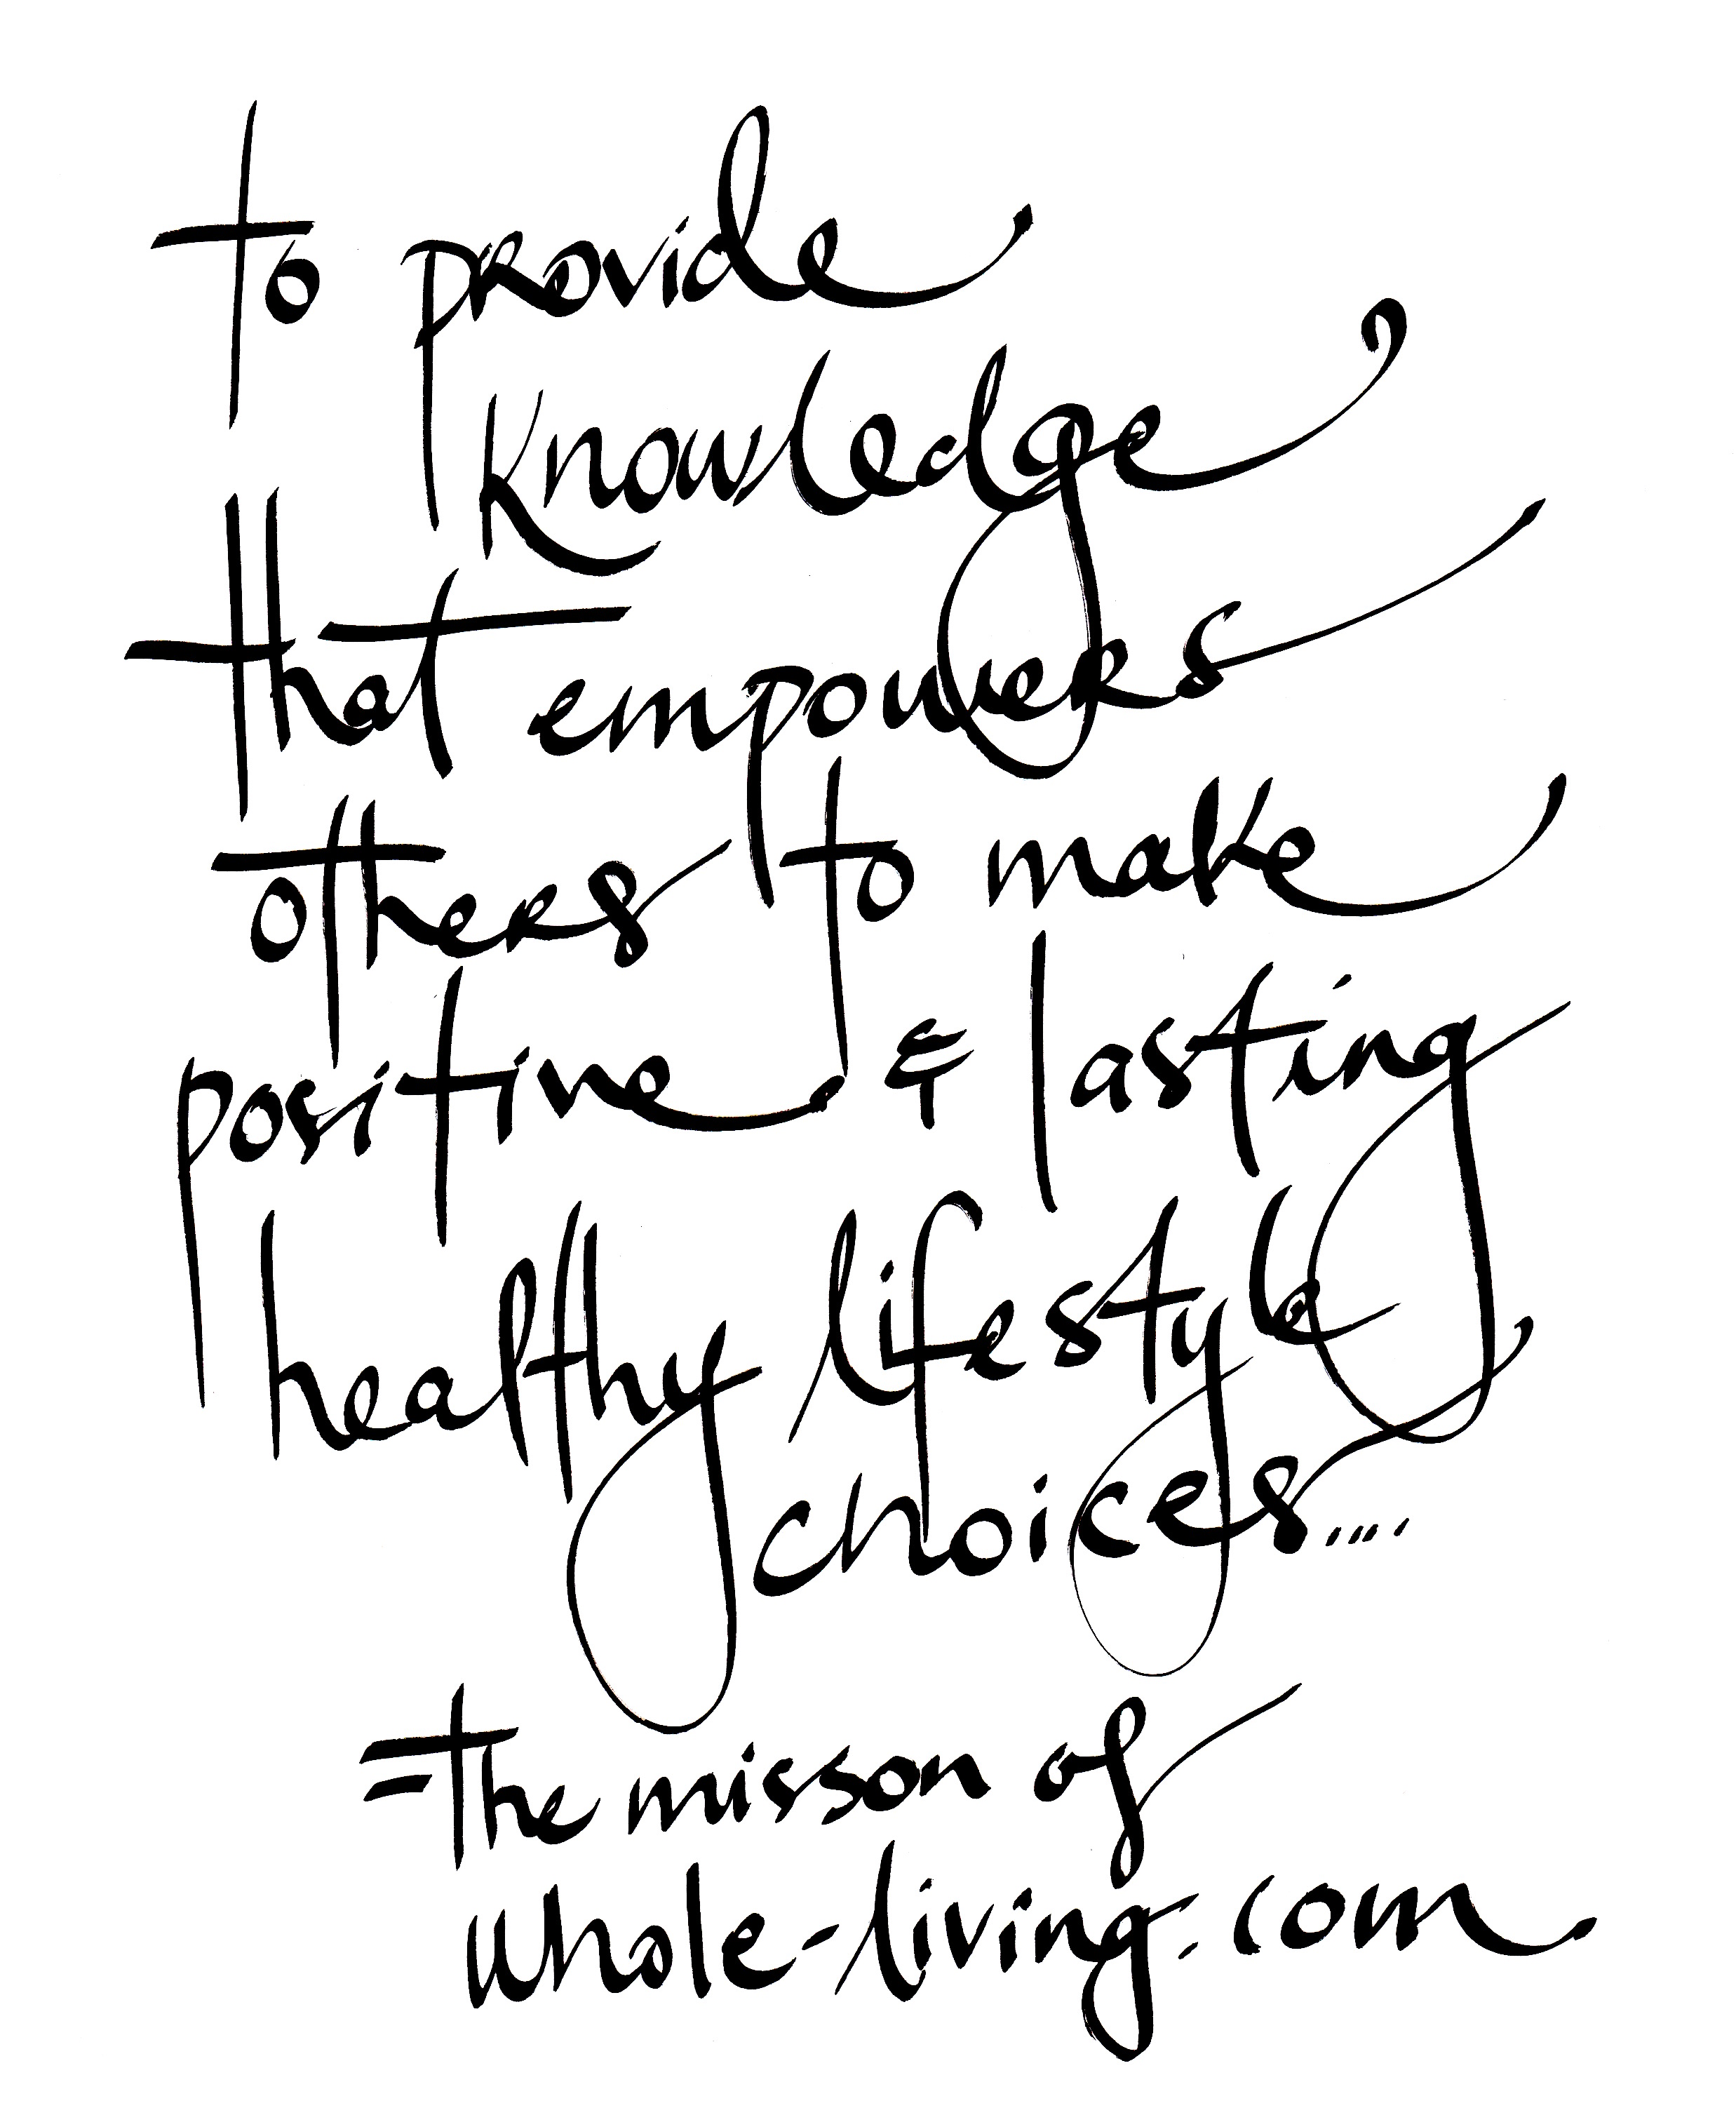 to provide
knowledge
that empowers
others to make
positive & lasting
healthy lifestyle
choices....
the misson of
whole-living.com